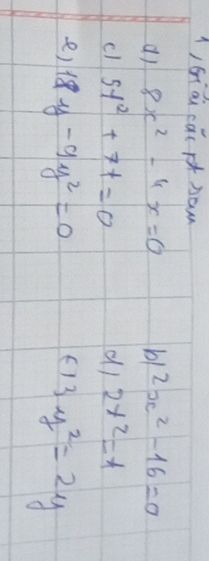 1, Giải các pt sau
a) 8x² - 4x = 0
b) 2x² - 16 = 0
c) 5t² + 7t = 0
d) 2t² = t
e) 18y - 9y² = 0
f) 3y² = 2y